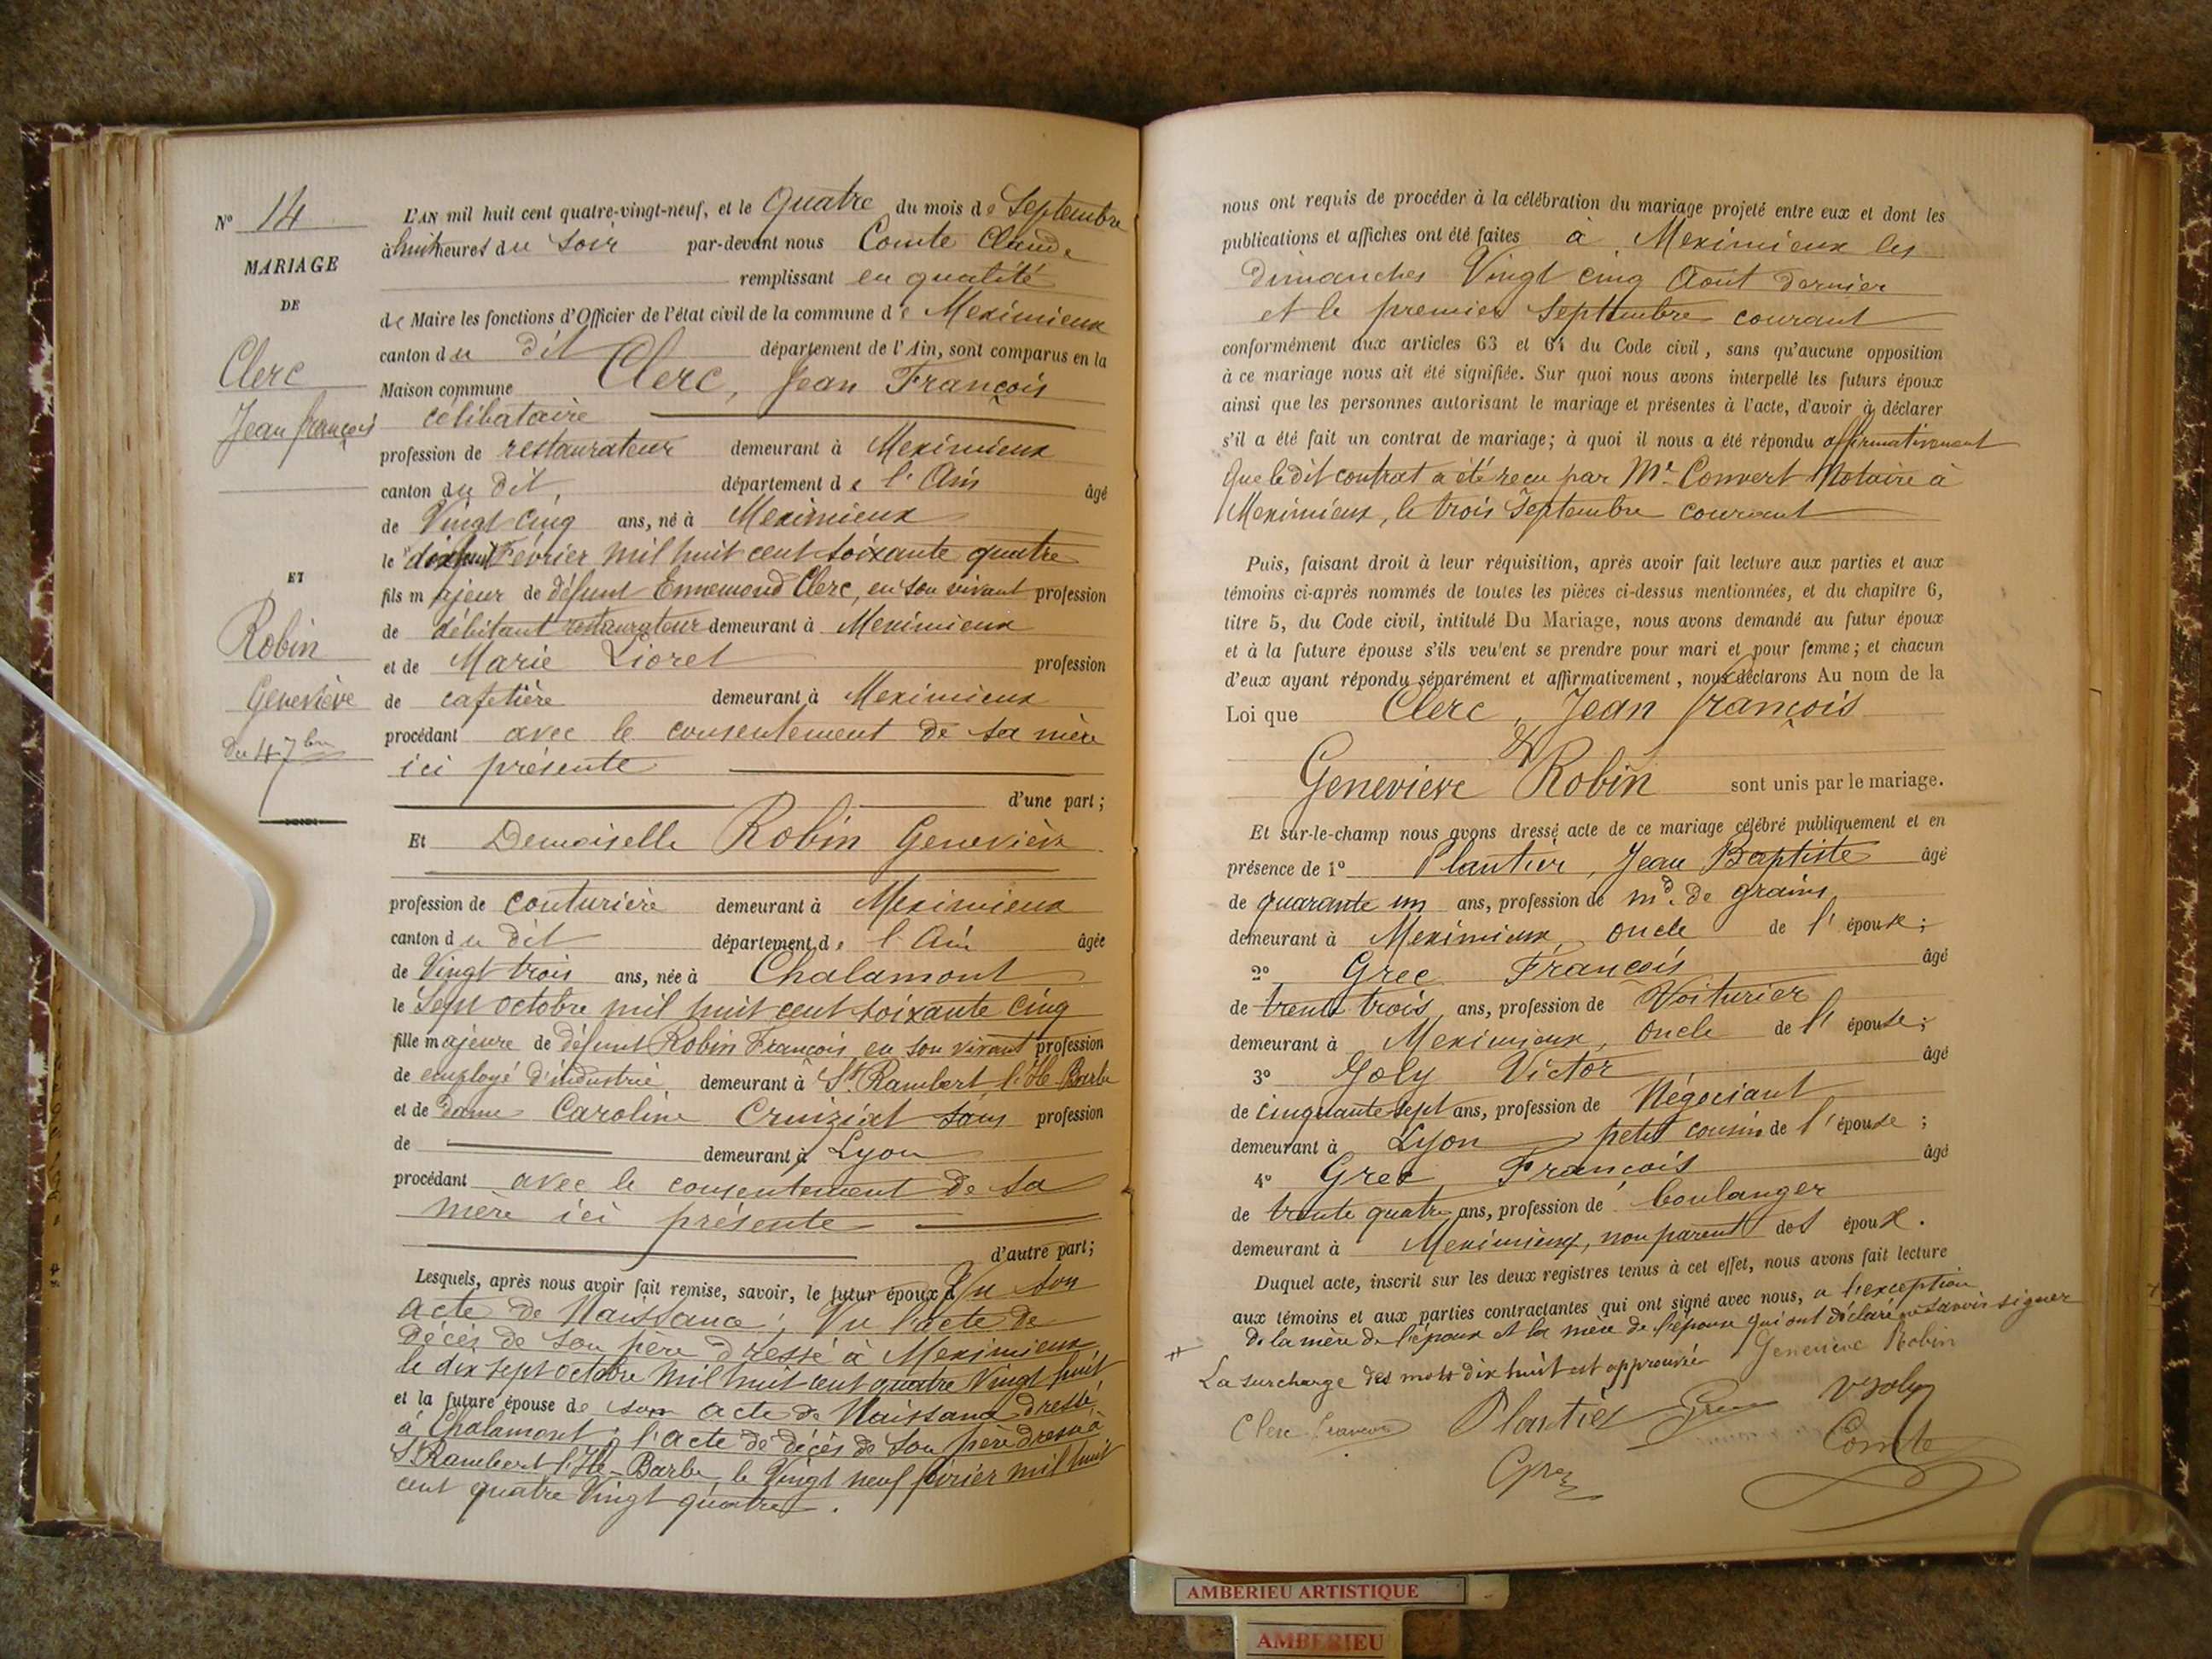 N° 14
MARIAGE
DE
Clerc
Jean françois
ET
Robin
Geneviève
Du 4 7bre
L'AN mil huit cent quatre-vingt-neuf, et le Quatre du mois de Septembre
à huit heures du Soir par-devant nous Comte Claude
remplissant en qualité
de Maire les fonctions d'Officier de l'état civil de la commune de Meximieux
canton du dit département de l'Ain, sont comparus en la
Maison commune Clerc, Jean François
célibataire
profession de restaurateur demeurant à Meximieux
canton du dit, département de l'Ain âgé
de Vingt cinq ans, né à Meximieux
le dix huit Février mil huit cent soixante quatre
fils majeur de défunt Ennemond Clerc, en son vivant profession
de débitant restaurateur demeurant à Meximieux
et de Marie Lioret profession
de cafetière demeurant à Meximieux
procédant avec le consentement de sa mère
ici présente
d'une part;
Et Demoiselle Robin Geneviève
profession de couturière demeurant à Meximieux
canton du dit département de l'Ain âgée
de Vingt trois ans, née à Chalamont
le Sept octobre mil huit cent soixante cinq
fille majeure de défunt Robin François en son vivant profession
de employé d'industrie demeurant à St Rambert l'Ile Barbe
et de Dame Caroline Cruiziat sans profession
de demeurant à Lyon
procédant avec le consentement de sa
mère ici présente
d'autre part;
Lesquels, après nous avoir fait remise, savoir, le futur époux Vu son
acte de Naissance; Vu l'acte de
décès de son père dressé à Meximieux
le dix sept octobre mil huit cent quatre Vingt huit
et la future épouse de son acte de Naissance dressé
à Chalamont; l'acte de décès de son père dressé à
St Rambert l'Ile-Barbe, le Vingt neuf février mil huit
cent quatre Vingt quatre.
nous ont requis de procéder à la célébration du mariage projeté entre eux et dont les
publications et affiches ont été faites à Meximieux les
dimanches Vingt cinq Août dernier
et le premier Septembre courant
conformément aux articles 63 et 64 du Code civil, sans qu'aucune opposition
à ce mariage nous ait été signifiée. Sur quoi nous avons interpellé les futurs époux
ainsi que les personnes autorisant le mariage et présentes à l'acte, d'avoir à déclarer
s'il a été fait un contrat de mariage; à quoi il nous a été répondu affirmativement
que le dit contrat a été reçu par Mr Convert Notaire à
Meximieux, le trois Septembre courant
Puis, faisant droit à leur réquisition, après avoir fait lecture aux parties et aux
témoins ci-après nommés de toutes les pièces ci-dessus mentionnées, et du chapitre 6,
titre 5, du Code civil, intitulé Du Mariage, nous avons demandé au futur époux
et à la future épouse s'ils veulent se prendre pour mari et pour femme; et chacun
d'eux ayant répondu séparément et affirmativement, nous déclarons Au nom de la
Loi que Clerc, Jean françois
&
Geneviève Robin sont unis par le mariage.
Et sur-le-champ nous avons dressé acte de ce mariage célébré publiquement et en
présence de 1° Plantier, Jean Baptiste âgé
de quarante un ans, profession de md. de grains
demeurant à Meximieux, oncle de l'épouse;
2° Grec François âgé
de trente trois ans, profession de Voiturier
demeurant à Meximieux, oncle de l'épouse;
3° Joly Victor âgé
de cinquante sept ans, profession de Négociant
demeurant à Lyon petit cousin de l'épouse;
4° Grec François âgé
de trente quatre ans, profession de boulanger
demeurant à Meximieux, non parent des époux.
Duquel acte, inscrit sur les deux registres tenus à cet effet, nous avons fait lecture
aux témoins et aux parties contractantes qui ont signé avec nous, a l'exception
de la mère de l'époux et la mère de l'épouse qui ont déclaré ne savoir signer
La surcharge des mots dix huit est approuvée Geneviève Robin
Clerc francois Plantier Grec V Joly
Comte
AMBERIEU ARTISTIQUE
AMBERIEU